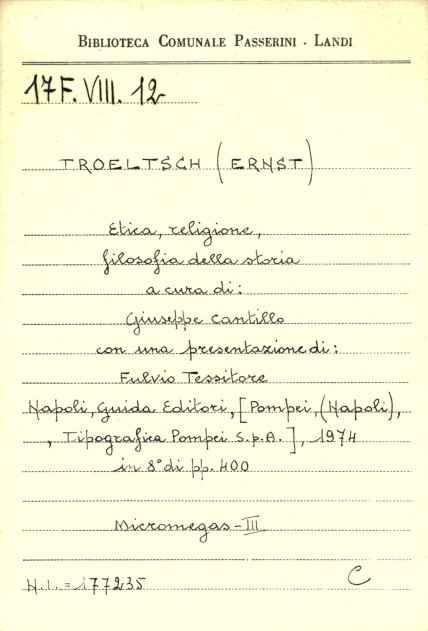 BIBLIOTECA COMUNALE PASSERINI - LANDI
17 F. VIII. 12
TROELTSCH (ERNST)
Etica, religione,
filosofia della storia
a cura di:
Giuseppe Cantillo
con una presentazione di:
Fulvio Tessitore
Napoli, Guida Editori, [Pompei, (Napoli),
, Tipografica Pompei S.p.A.], 1974
in 8° di pp. 400
Micromegas - III
N.I. = 177235 C